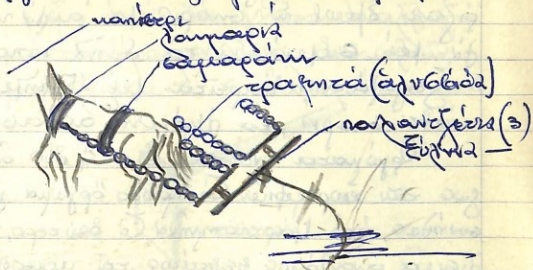 καπίστρι
λαιμαριά
σαμαράκι
τραβηχτά (ἁλυσίδα)
παλαντζέτια (3)
ξύλινα